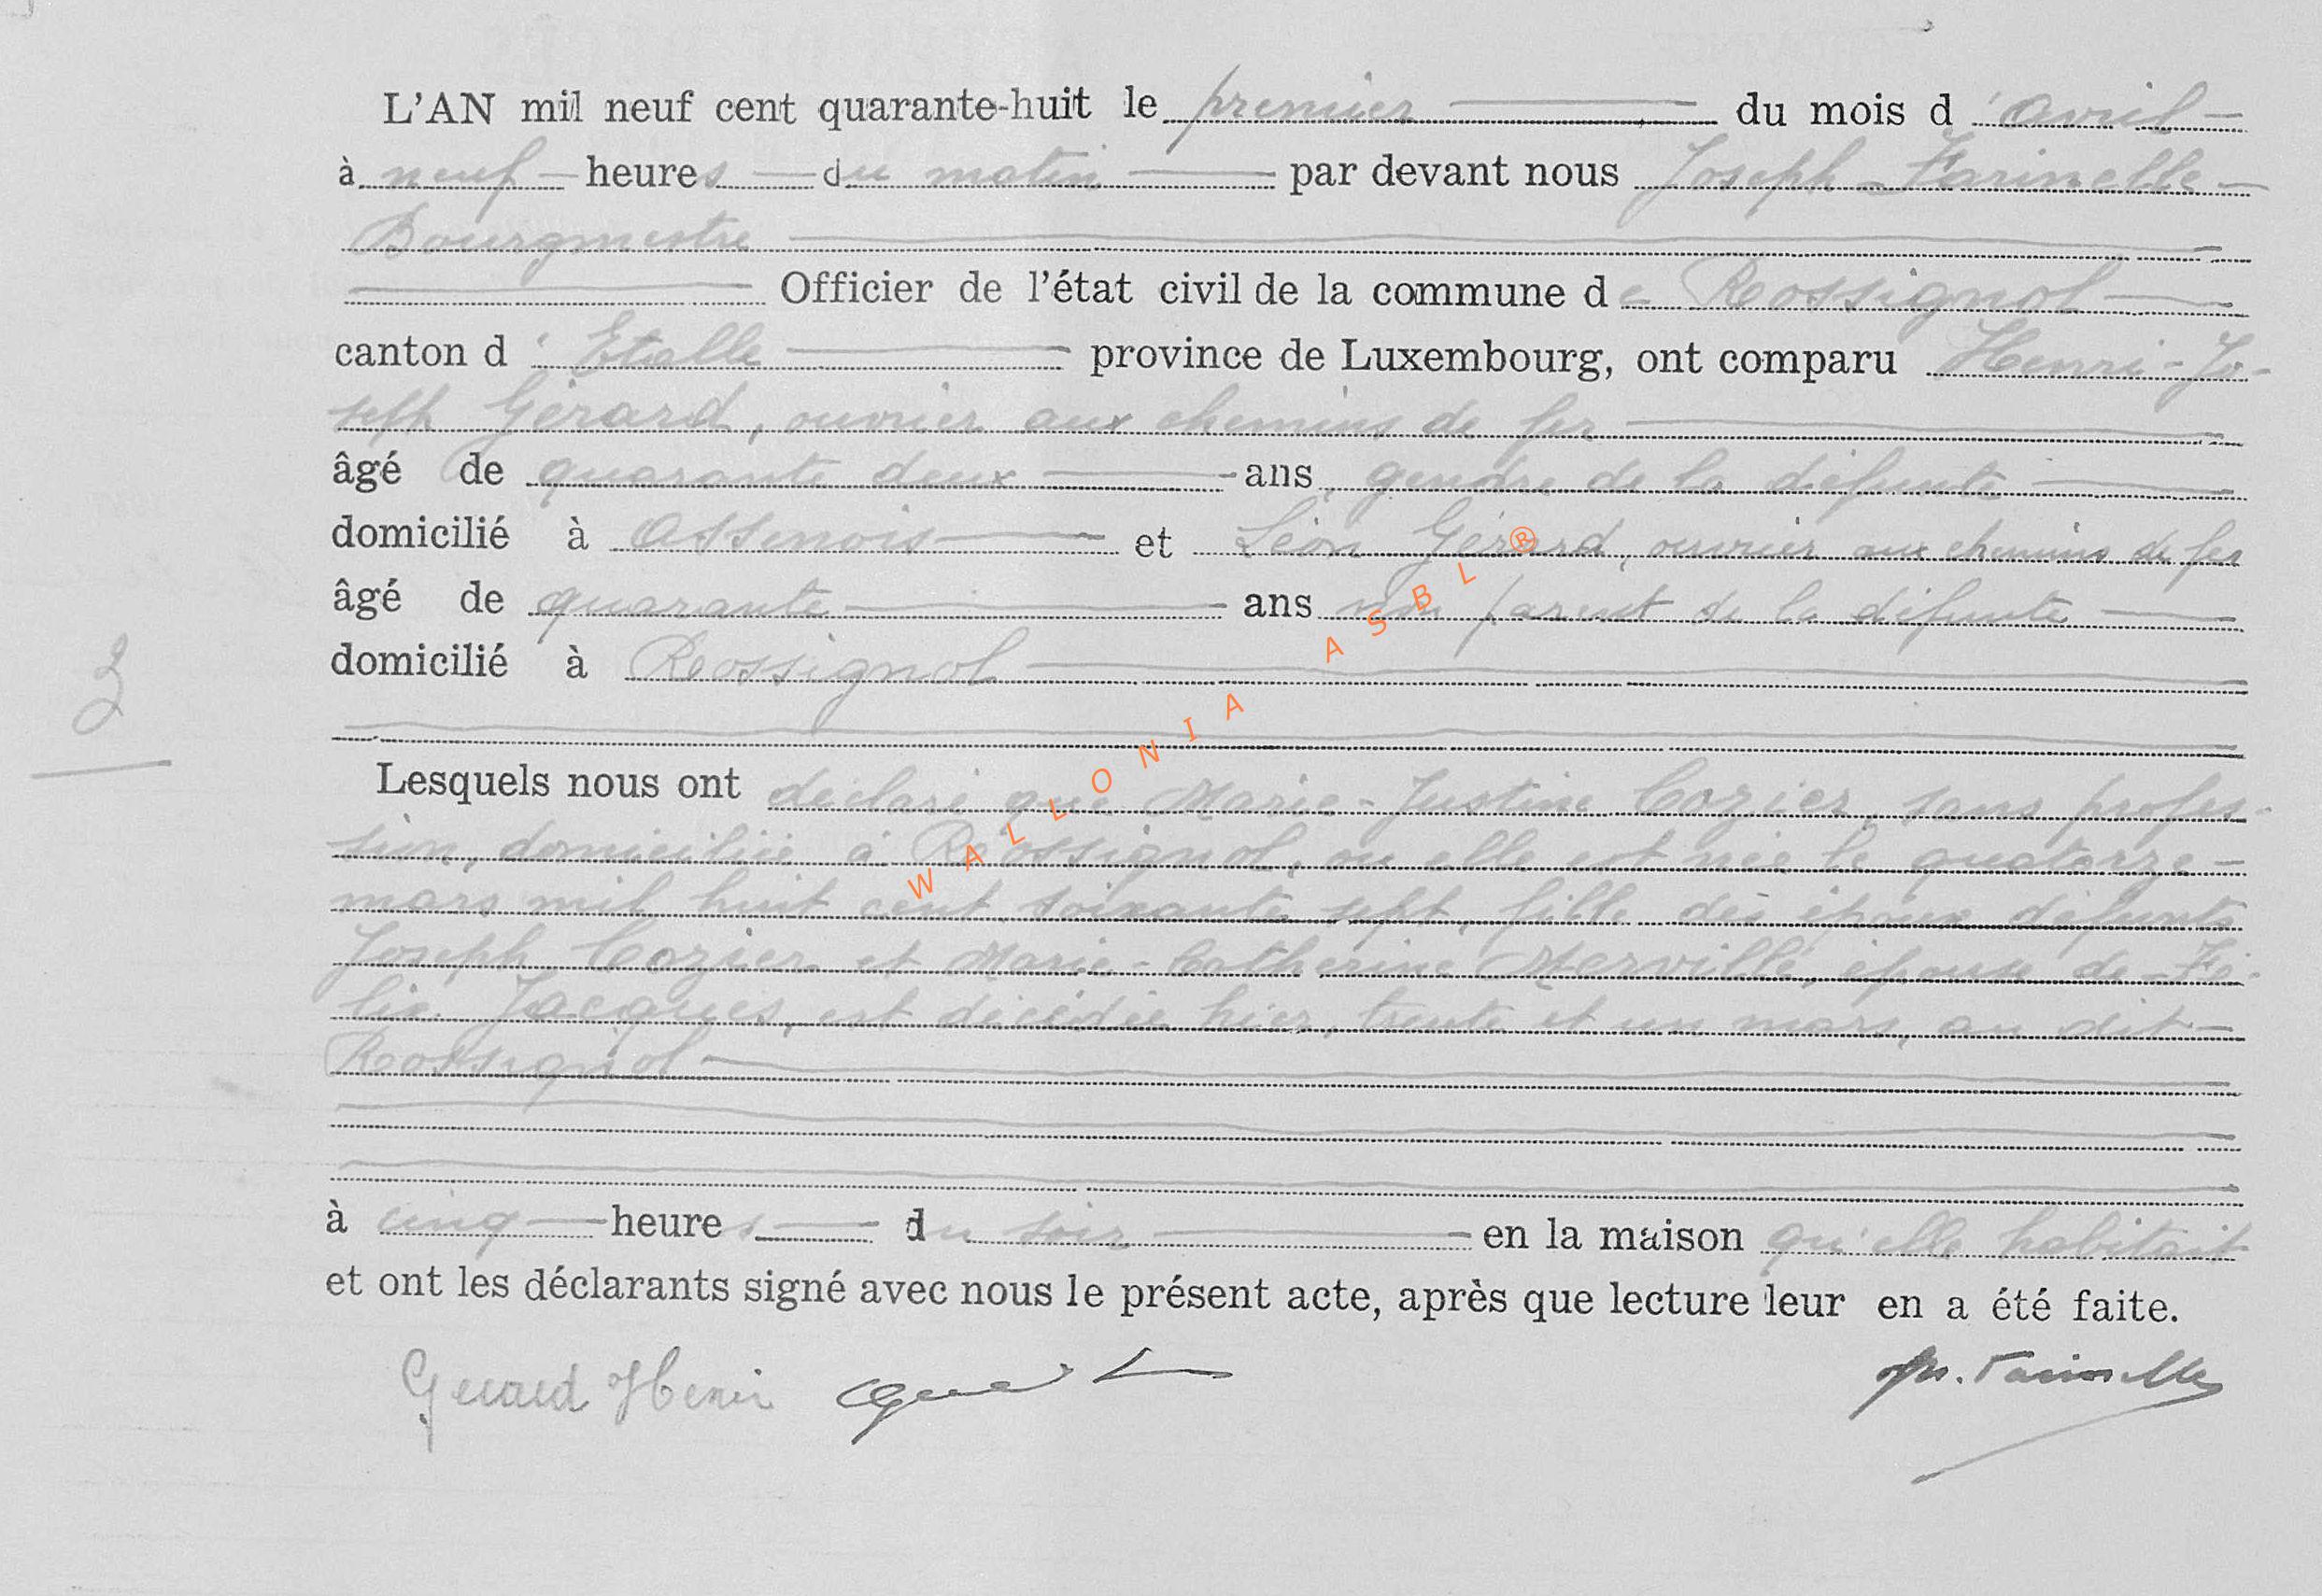 L'AN mil neuf cent quarante-huit le premier du mois d'avril
à neuf heures du matin par devant nous Joseph Farinelle
Bourgmestre
Officier de l'état civil de la commune de Rossignol
canton d'Etalle province de Luxembourg, ont comparu Henri-Jo-
seph Gérard, ouvrier aux chemins de fer
âgé de quarante deux ans, gendre de la défunte
domicilié à Assenois et Léon Gérard, ouvrier aux chemins de fer
âgé de quarante ans non parent de la défunte
domicilié à Rossignol
3
Lesquels nous ont déclaré que Marie-Justine Cozier, sans profes-
sion, domiciliée à Rossignol, où elle est née le quatorze
mars mil huit cent soixante sept, fille des époux défunts
Joseph Cozier et Marie-Catherine Merville, épouse de Fé-
lix Jacques, est décédée hier, trente et un mars, au dit
Rossignol
à cinq heures du soir en la maison qu'elle habitait
et ont les déclarants signé avec nous le présent acte, après que lecture leur en a été faite.
Gerard Henri Jos. Farinelle
WALLONIA ASBL ®